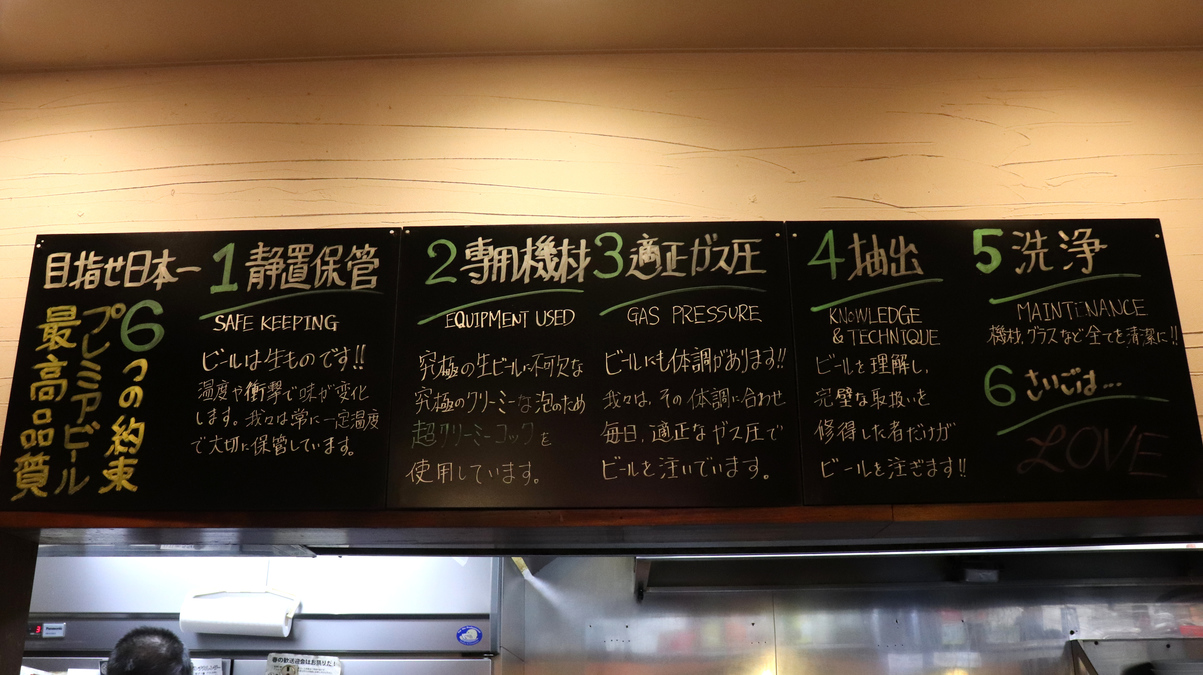 目指せ日本一
6つの約束
プレミアビール
最高品質
1 静置保管
SAFE KEEPING
ビールは生ものです!!
温度や衝撃で味が変化
します。我々は常に一定温度
で大切に保管しています。
2 専用機材
EQUIPMENT USED
究極の生ビールに不可欠な
究極のクリーミーな泡のため
超クリーミーコックを
使用しています。
3 適正ガス圧
GAS PRESSURE
ビールにも体調があります!!
我々は、その体調に合わせ
毎日、適正なガス圧で
ビールを注いでいます。
4 抽出
KNOWLEDGE
& TECHNIQUE
ビールを理解し、
完璧な取扱いを
修得した者だけが
ビールを注ぎます!!
5 洗浄
MAINTiNANCE
機材、グラスなど全てを清潔に!!
6 さいごは…
LOVE
Panasonic
春の歓送迎会はお決まり